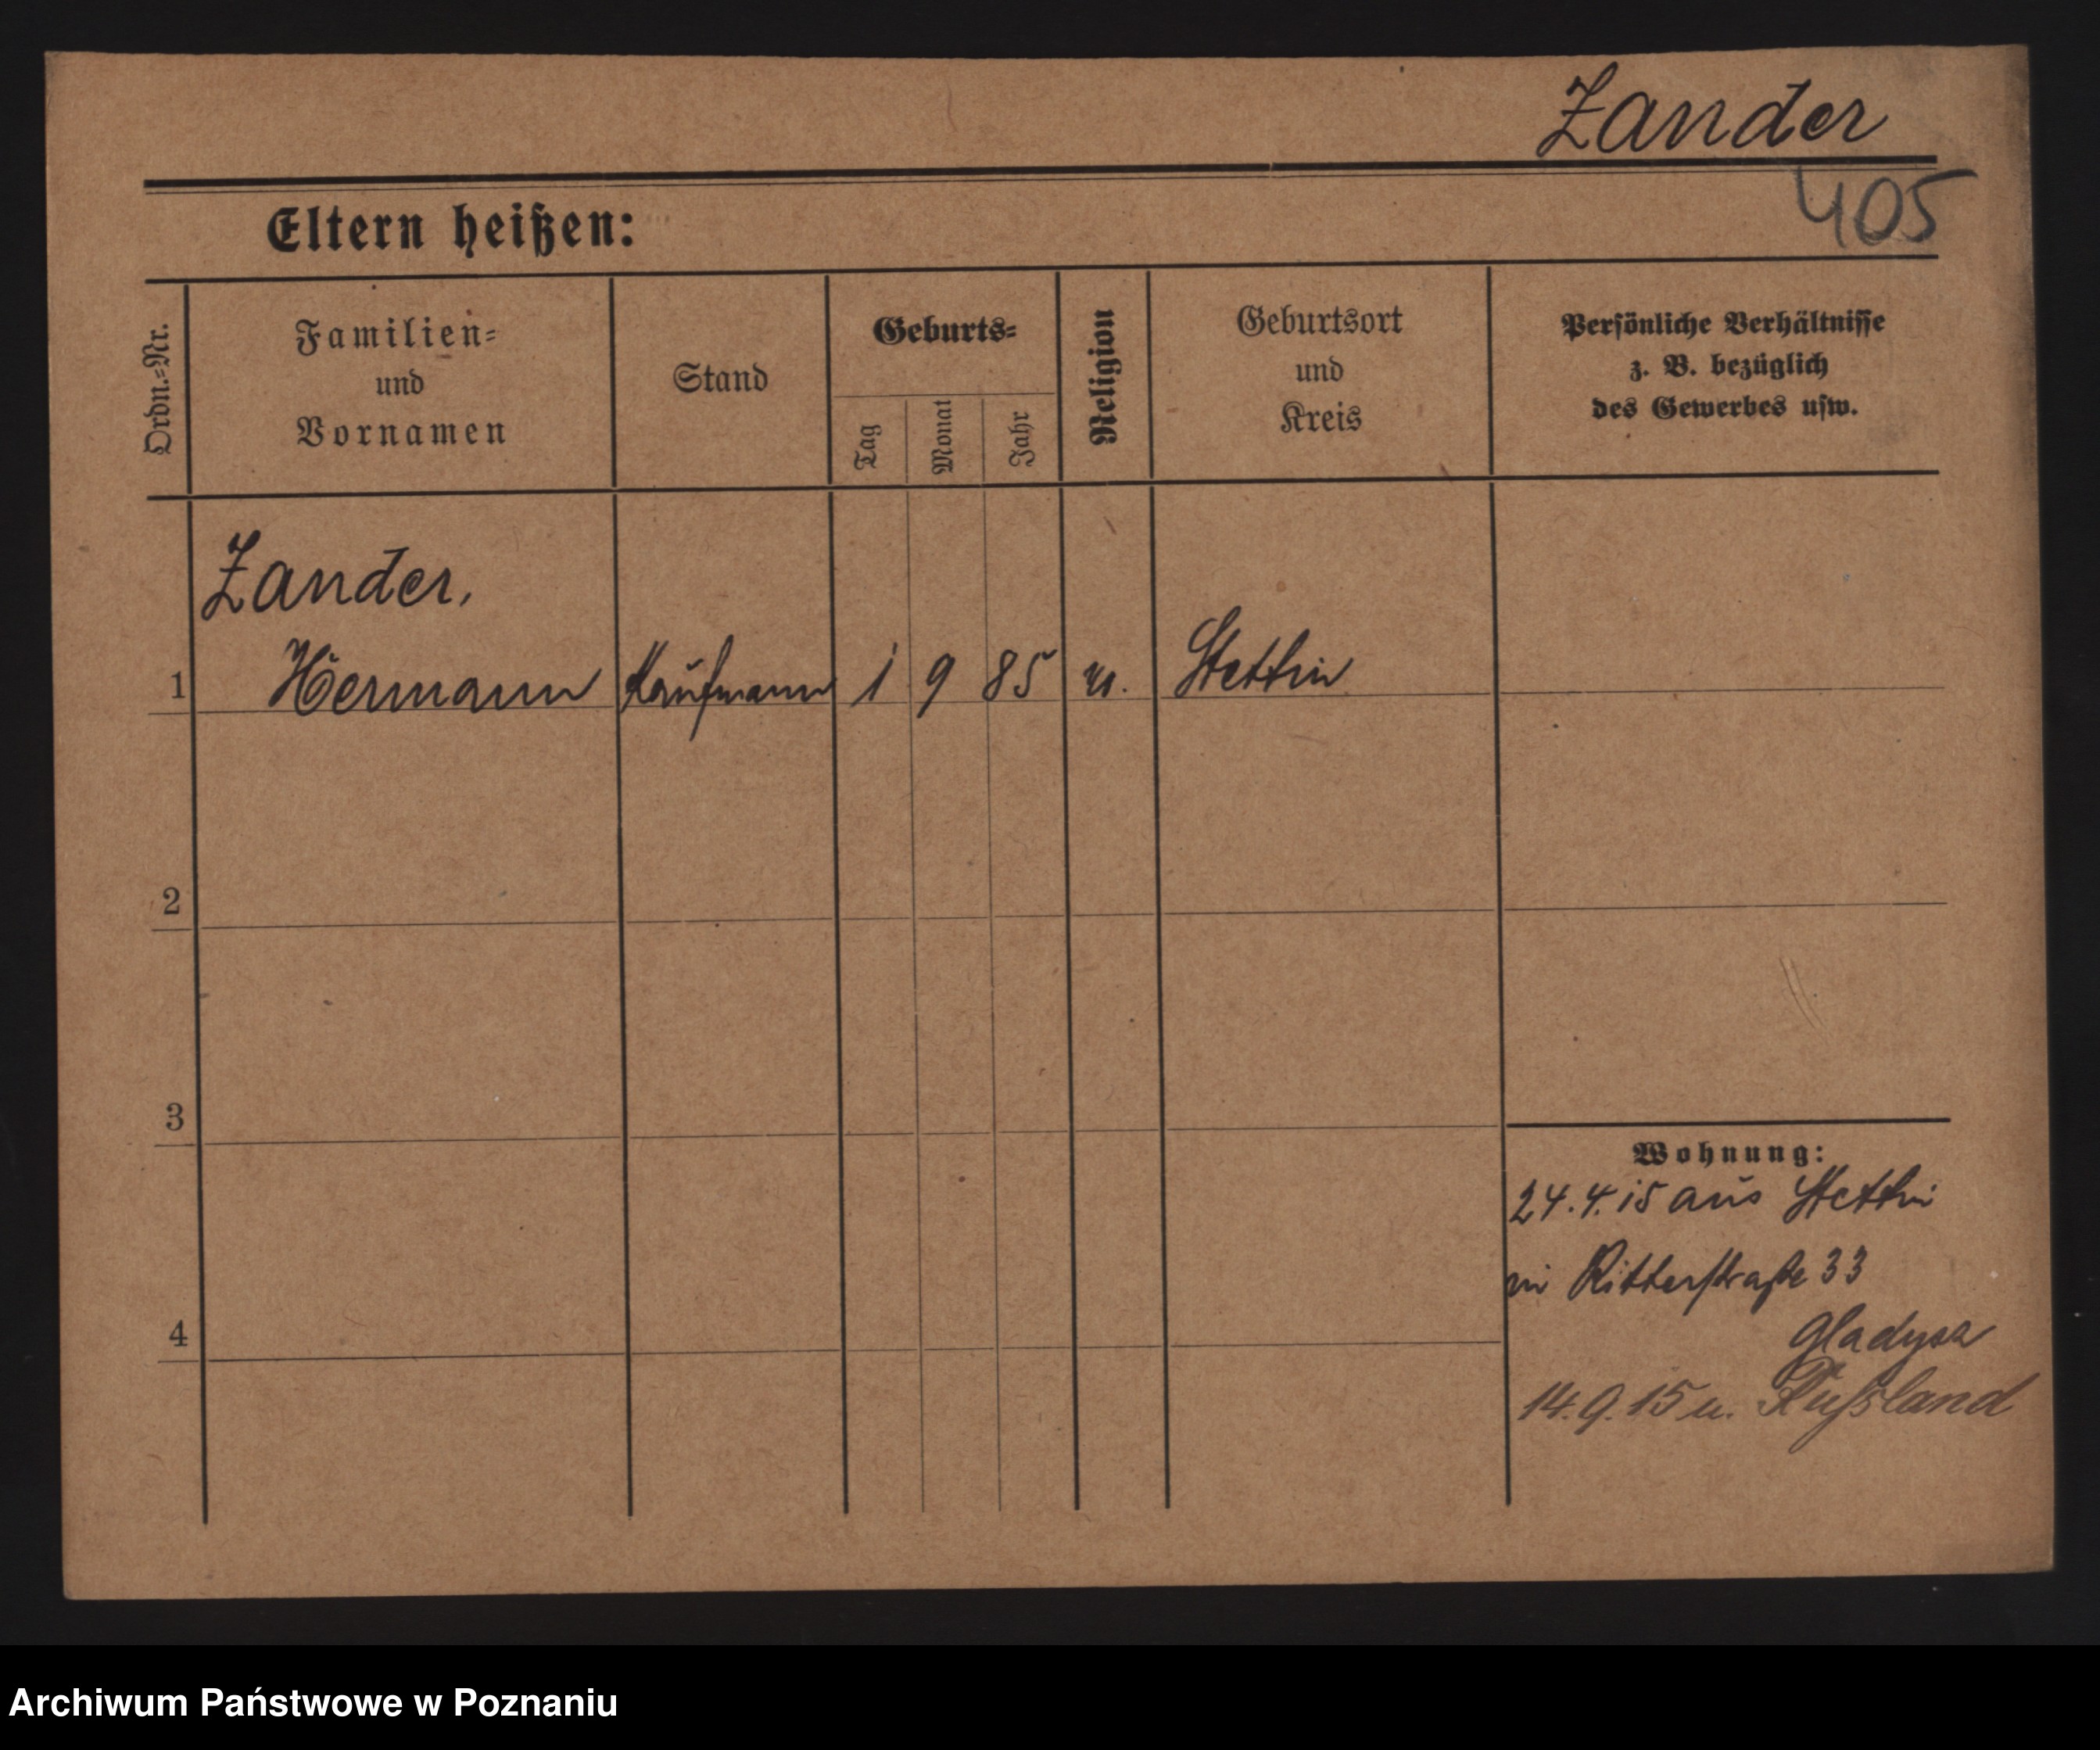 Zander
405
Eltern heißen:
Ordn.=Nr.
Familien=
und
Vornamen
Stand
Geburts=
Tag
Monat
Jahr
Religion
Geburtsort
und
Kreis
Persönliche Verhältnisse
z. B. bezüglich
des Gewerbes usw.
Zander,
1 Hermann Kaufmann 1 9 85 Stettin
2
3
4
Wohnung:
24.4.15 aus Stettin
in Ritterstraße 33
Gladysz
14.9.15 u. Rußland
Archiwum Państwowe w Poznaniu